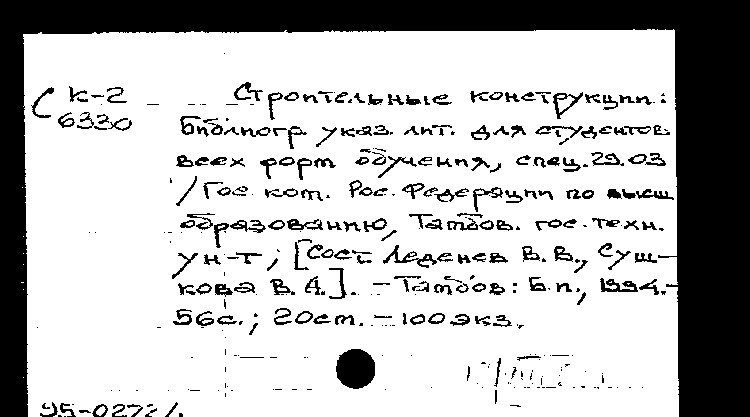 С К-2
6330
Строительные конструкции:
Библиогр. указ. лит. для студентов
всех форм обучения, спец. 29.03
/ Гос. ком. Рос. Федерации по высш
образованию, Тамбов. гос. техн.
ун-т; [Сост. Леденев В. В., Суш-
кова В. А.]. - Тамбов: Б.и., 1994.-
56с.; 20см. - 100экз.
95-0272/.